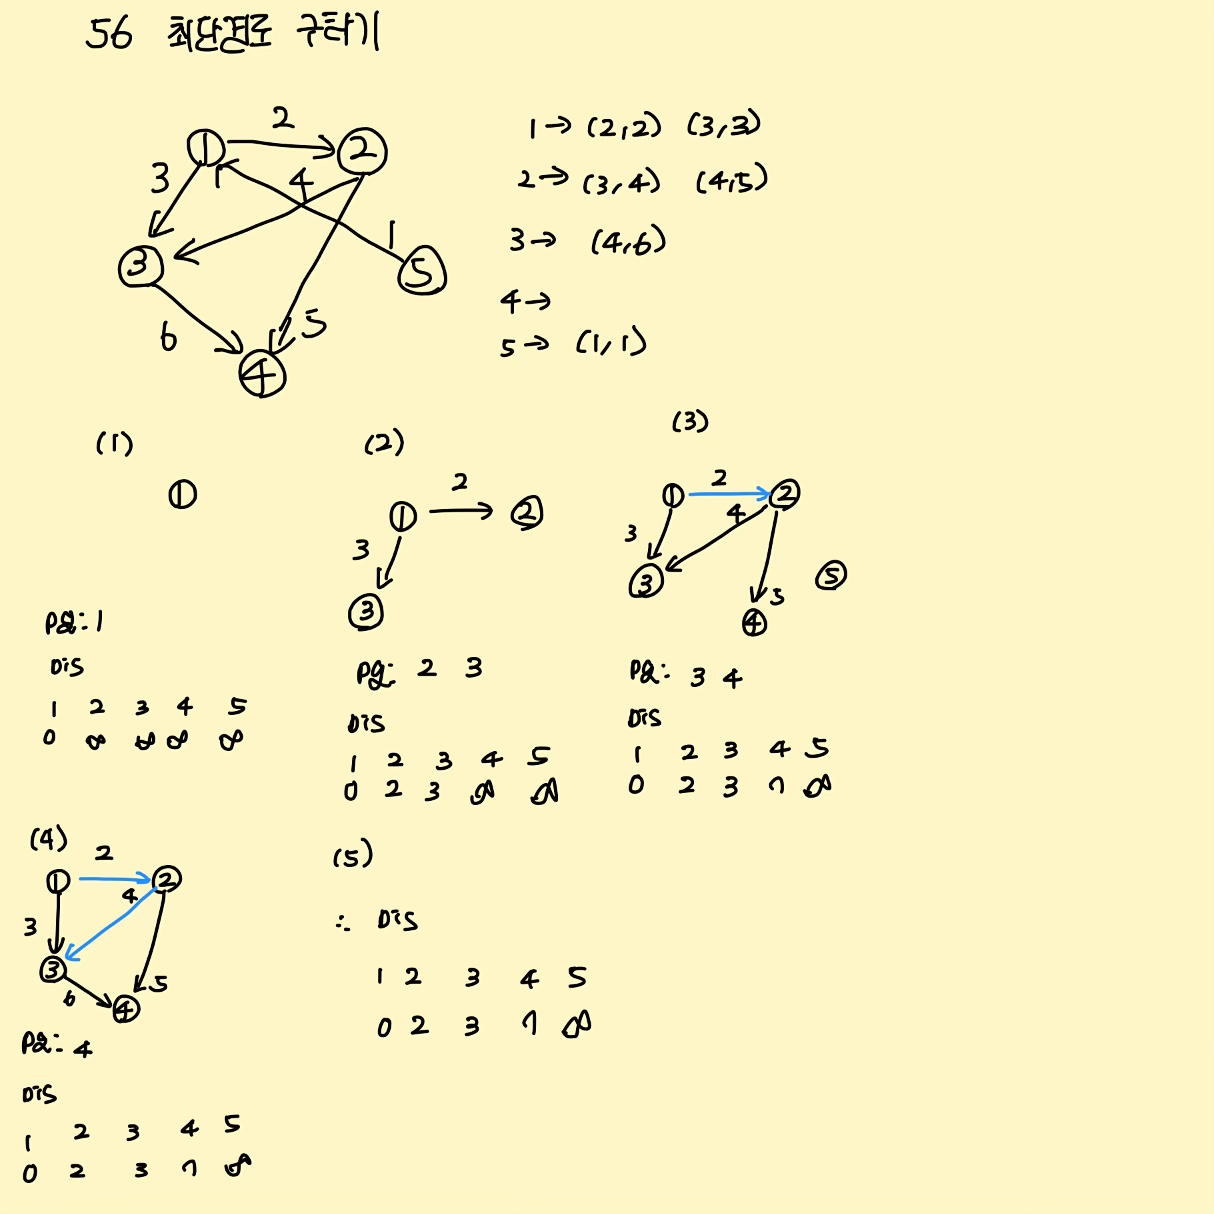 56 최단경로 구하기
2
1 2
3 4
1
3 5
6 5
4
1 → (2,2) (3,3)
2 → (3,4) (4,5)
3 → (4,6)
4 →
5 → (1,1)
(1)
1
PQ: 1
Dis
1 2 3 4 5
0 ∞ ∞ ∞ ∞
(2)
2
1 2
3
3
PQ: 2 3
Dis
1 2 3 4 5
0 2 3 ∞ ∞
(3)
2
1 2
4
3
3 5
4 5
PQ: 3 4
Dis
1 2 3 4 5
0 2 3 7 ∞
(4)
2
1 2
4
3
3 5
6 4
PQ: 4
Dis
1 2 3 4 5
0 2 3 7 ∞
(5)
∴ Dis
1 2 3 4 5
0 2 3 7 ∞